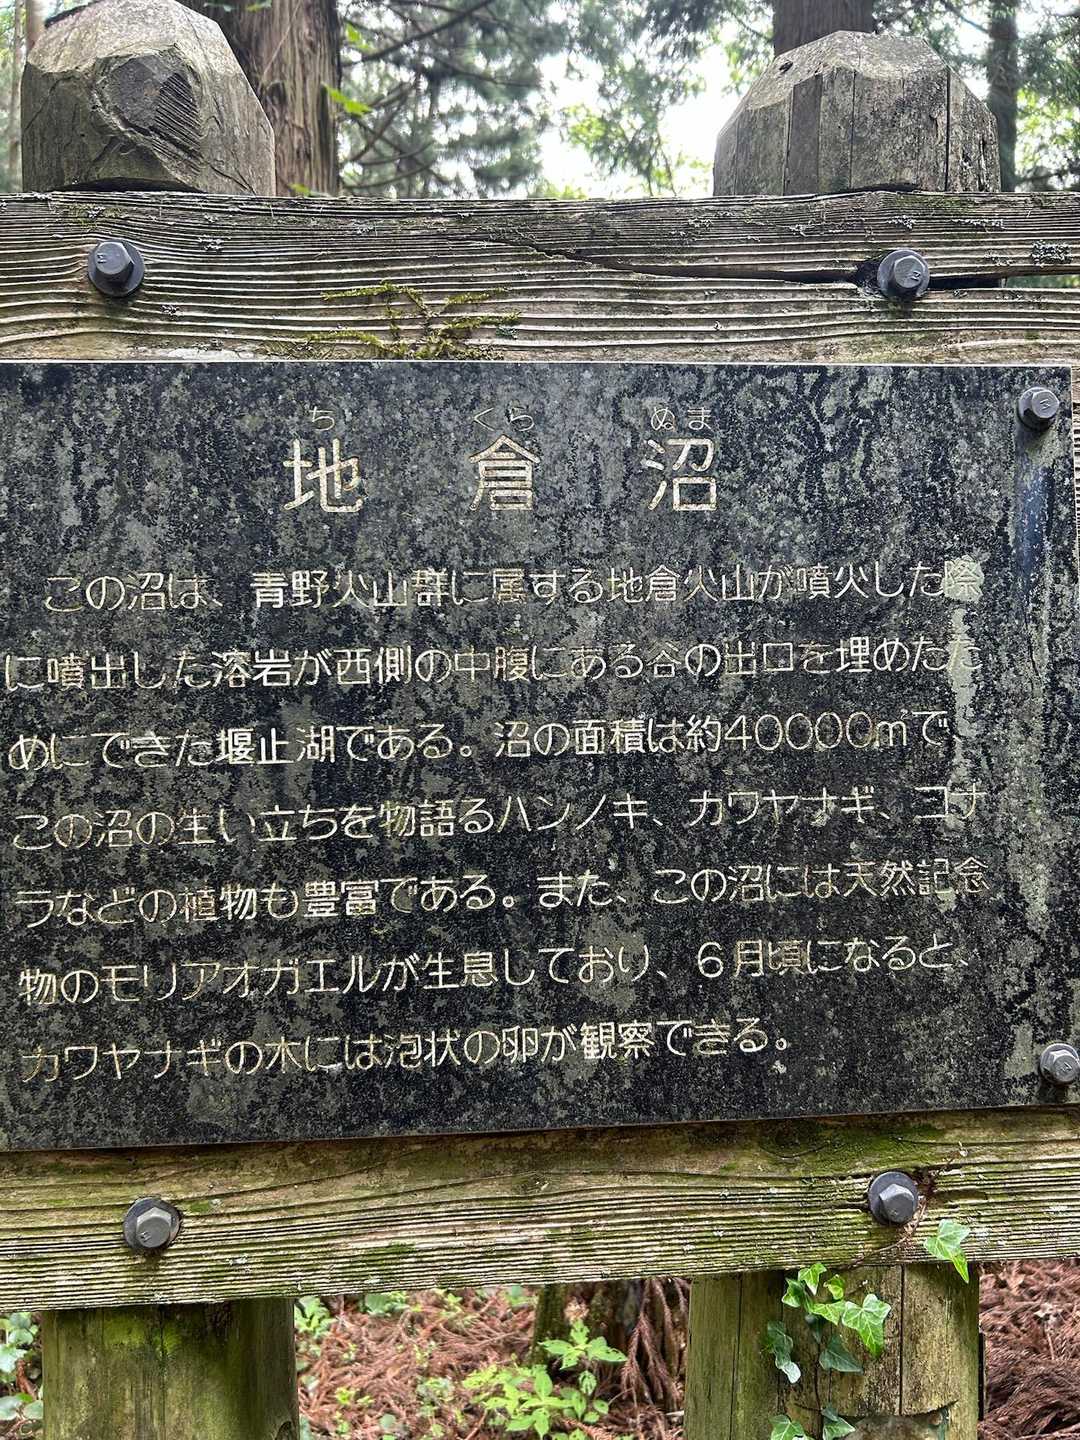 ち くら ぬま
地 倉 沼
この沼は、青野火山群に属する地倉火山が噴火した際
に噴出した溶岩が西側の中腹にある谷の出口を埋めたた
めにできた堰止湖である。沼の面積は約40000㎡で、
この沼の生い立ちを物語るハンノキ、カワヤナギ、コナ
ラなどの植物も豊富である。また、この沼には天然記念
物のモリアオガエルが生息しており、6月頃になると、
カワヤナギの木には泡状の卵が観察できる。